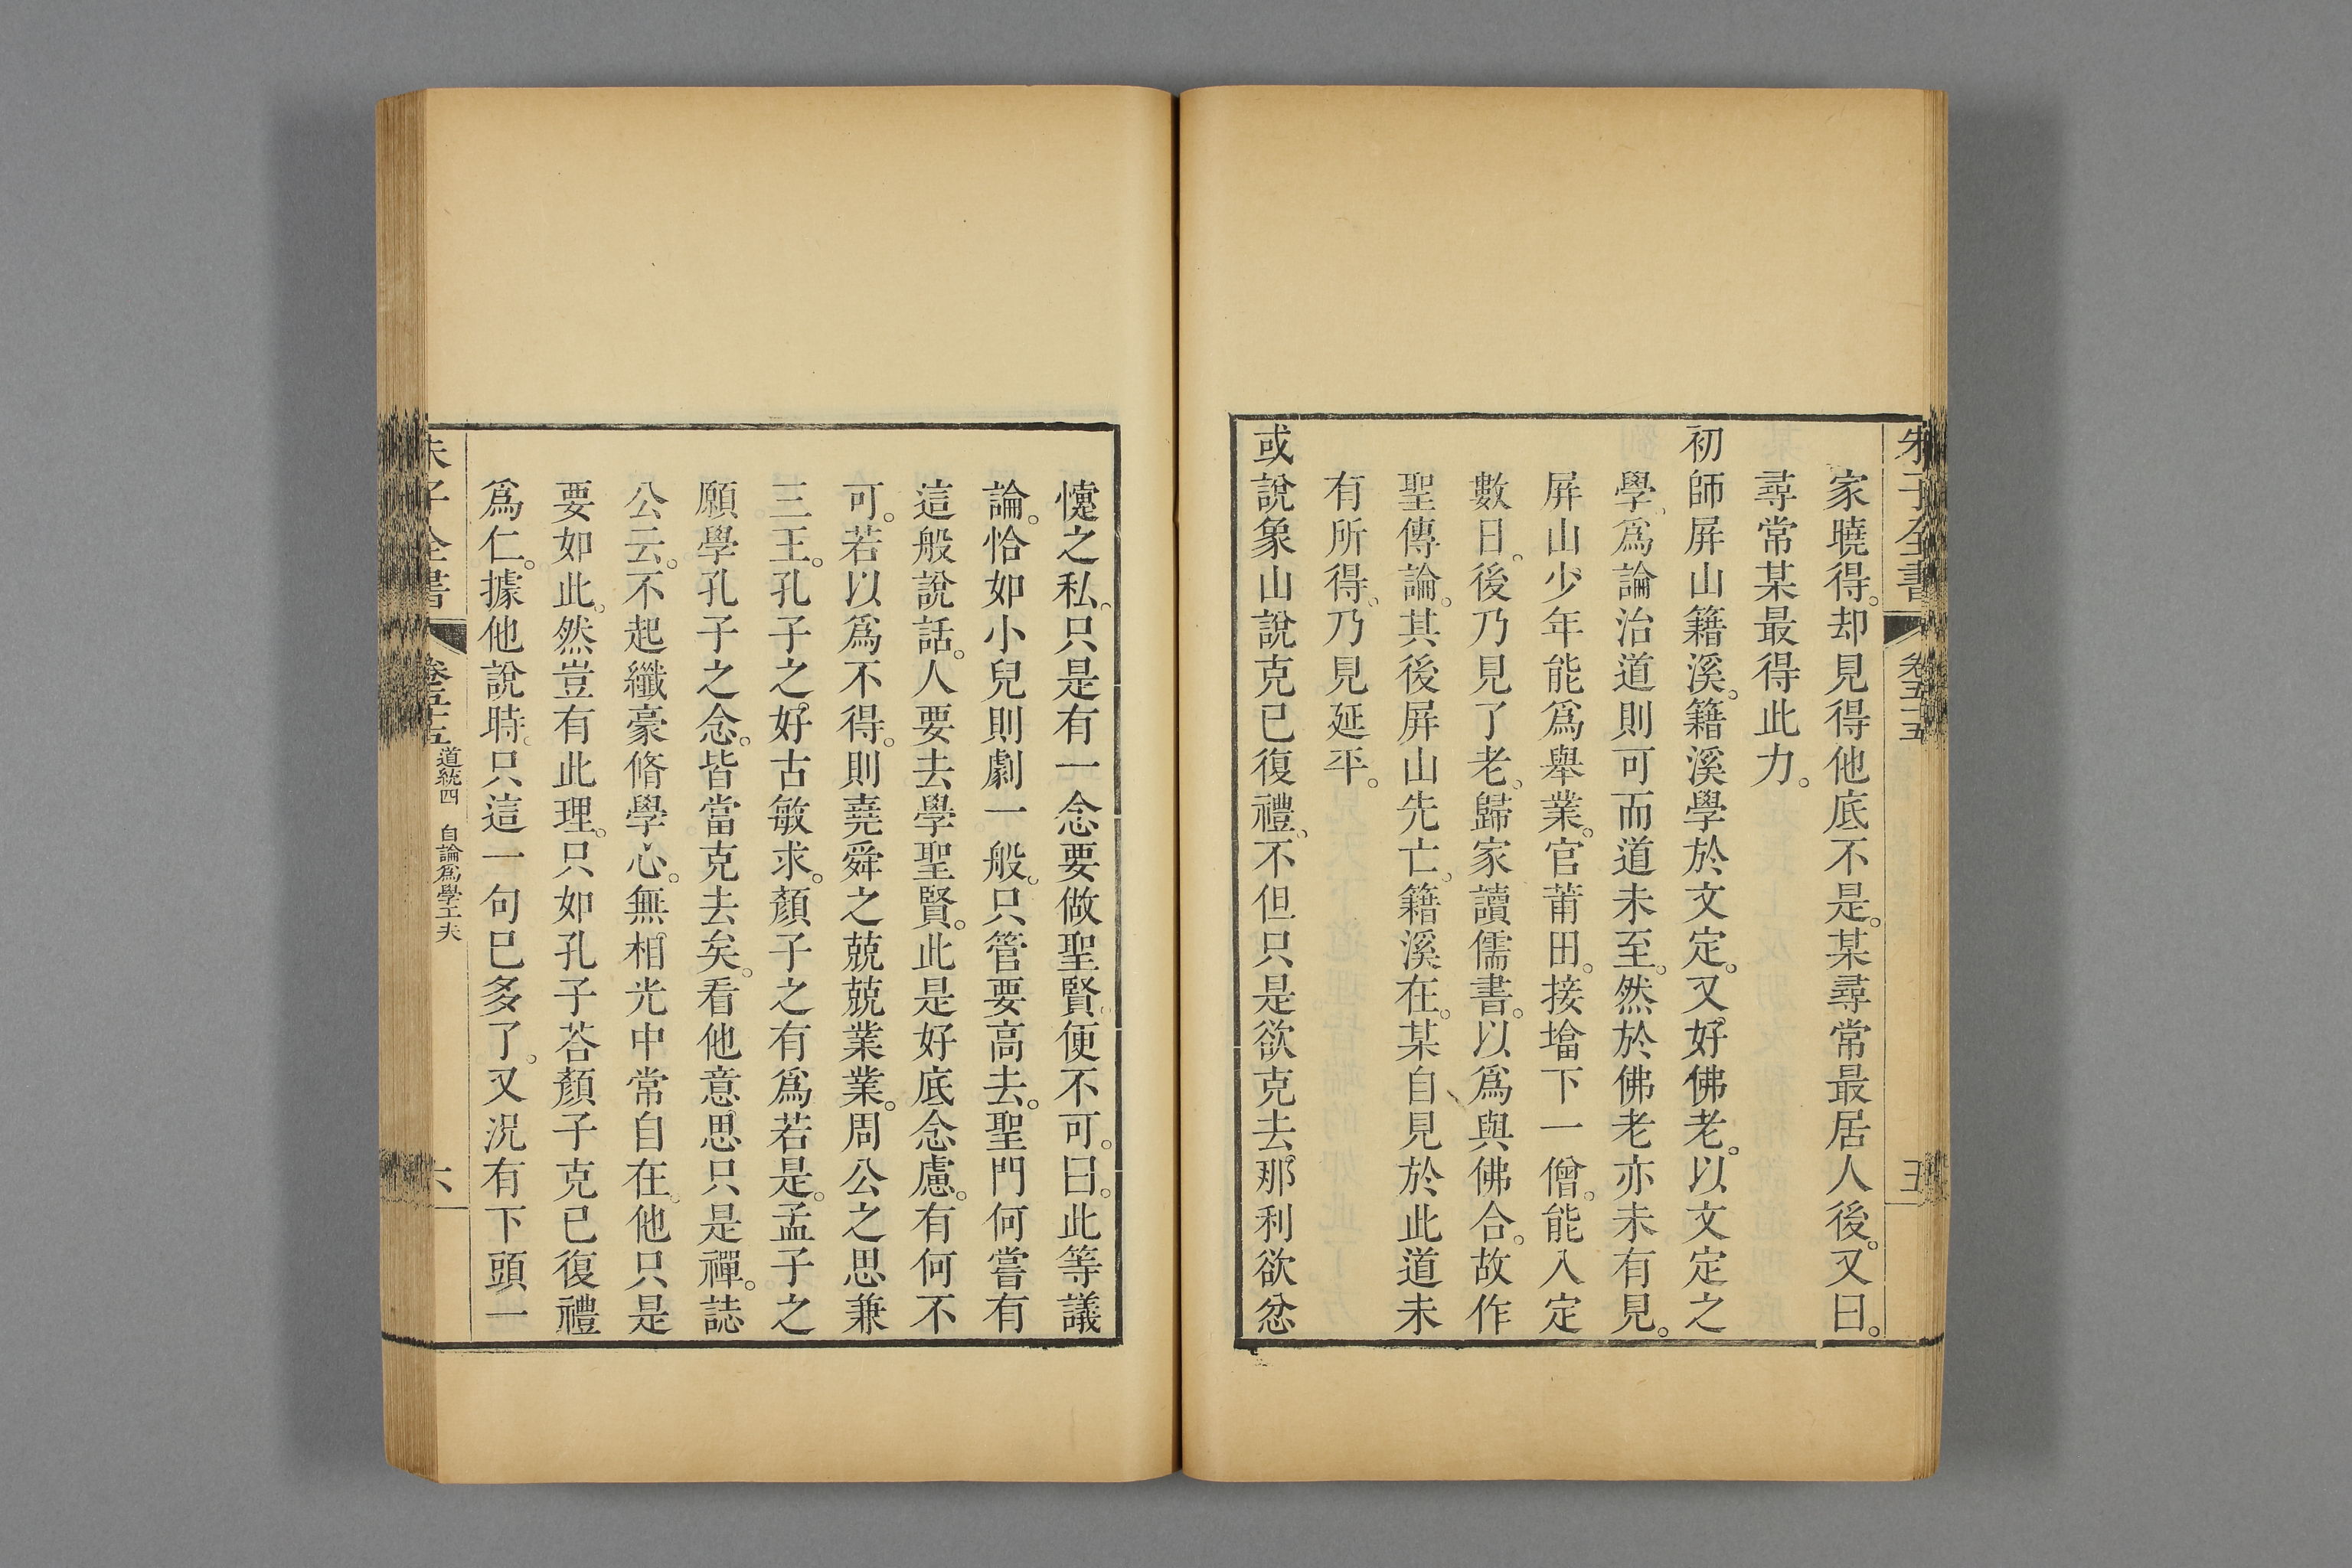 朱子全書 卷五十五 五
家曉得。却見得他底不是。某尋常最居人後。又曰。
尋常某最得此力。
初師屏山籍溪。籍溪學於文定。又好佛老。以文定之
學、爲論治道則可而道未至。然於佛老亦未有見。
屏山少年能爲舉業。官莆田。接墖下一僧。能入定
數日。後乃見了老。歸家讀儒書。以爲與佛合。故作
聖傳論。其後屏山先亡。籍溪在。某自見於此道未
有所得。乃見延平。
或說象山說克已復禮。不但只是欲克去。那利欲忿
懥之私。只是有一念要做聖賢。便不可。曰。此等議
論。恰如小兒則劇一般。只管要高去。聖門何嘗有
這般說話。人要去學聖賢。此是好底念慮。有何不
可。若以爲不得。則堯舜之兢兢業業。周公之思兼
三王。孔子之好古敏求。顏子之有爲若是。孟子之
願學孔子之念。皆當克去矣。看他意思只是禪。誌
公云。不起纖豪脩學心。無相光中常自在。他只是
要如此。然豈有此理。只如孔子荅顏子克已復禮
爲仁。據他說時。只這一句已多了。又況有下頭一
朱子全書 卷五十五 道統四 自論爲學工夫 六